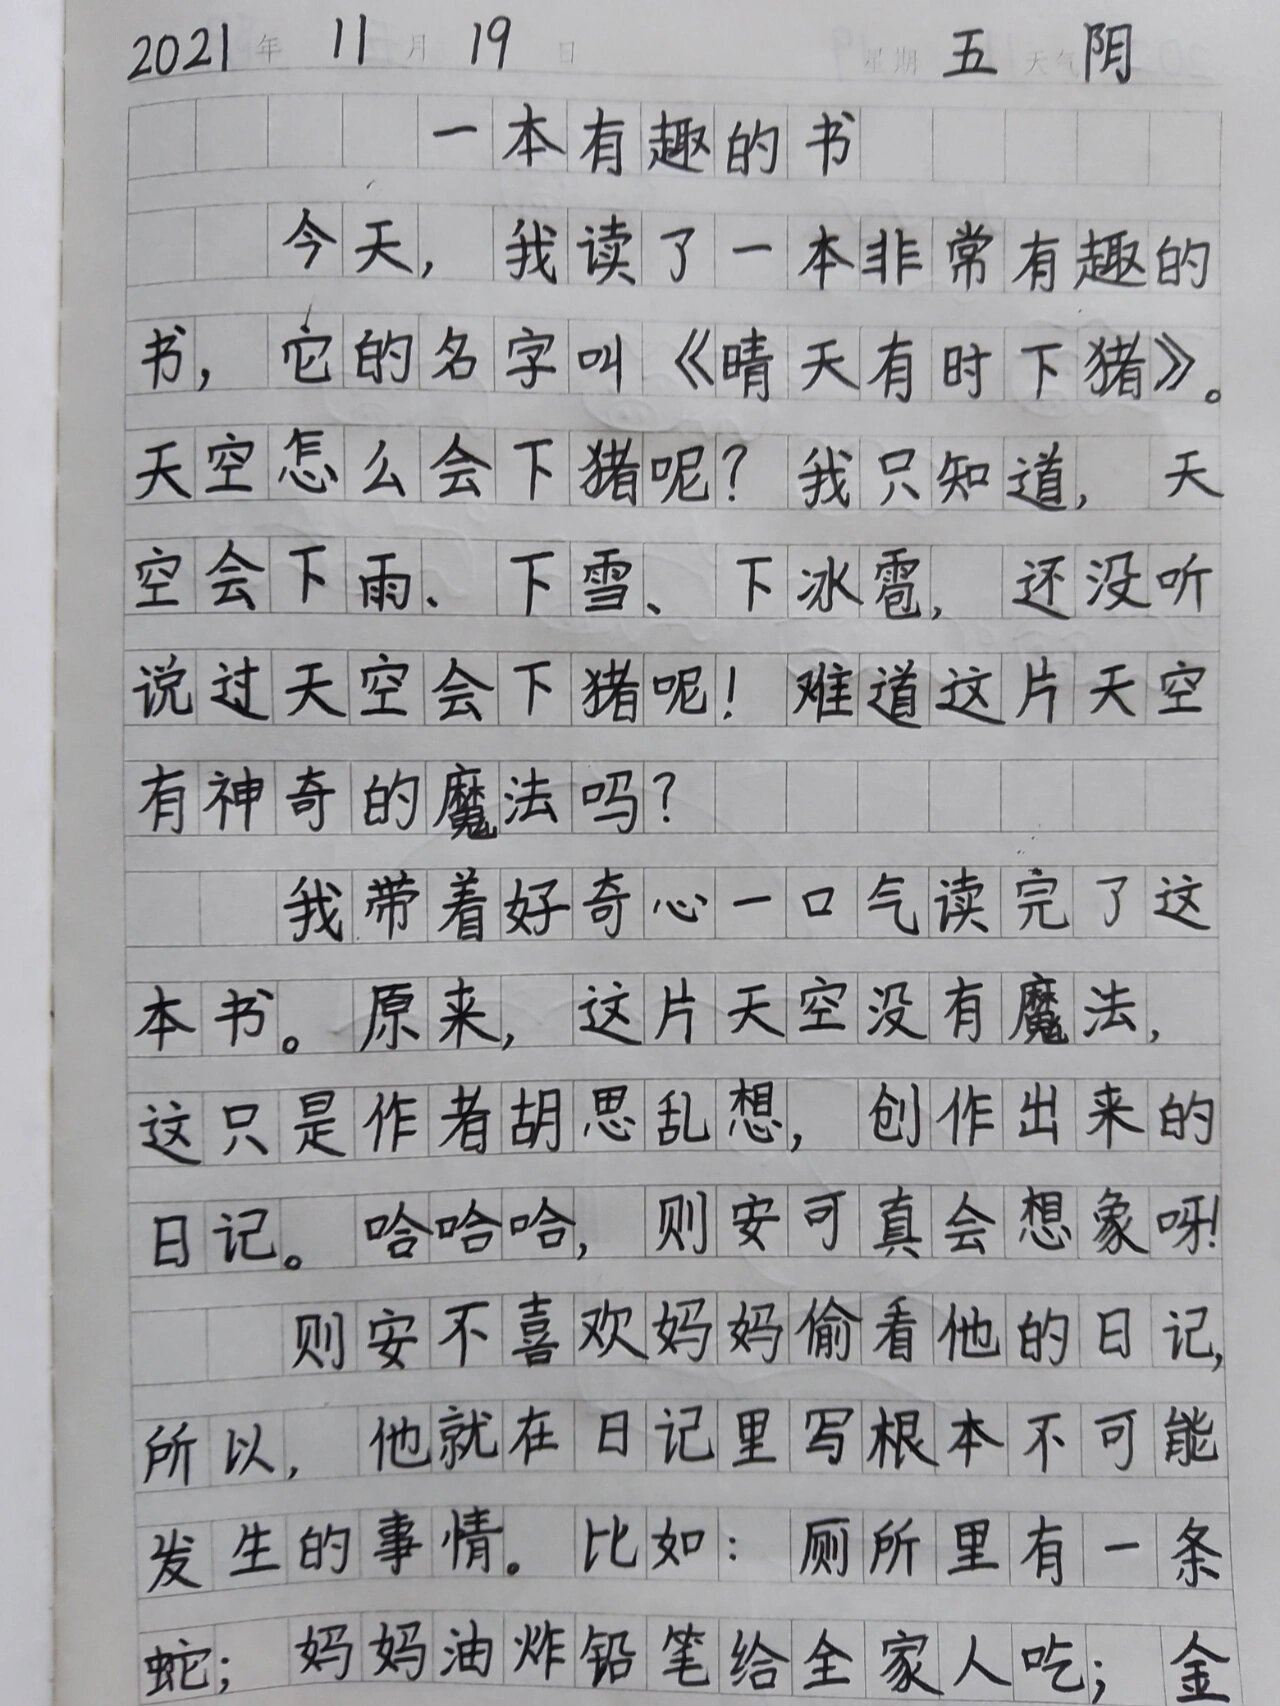 2021年 11月 19日 星期 五 天气 阴
一本有趣的书
今天，我读了一本非常有趣的
书，它的名字叫《晴天有时下猪》。
天空怎么会下猪呢？我只知道，天
空会下雨、下雪、下冰雹，还没听
说过天空会下猪呢！难道这片天空
有神奇的魔法吗？
我带着好奇心一口气读完了这
本书。原来，这片天空没有魔法，
这只是作者胡思乱想，创作出来的
日记。哈哈哈，则安可真会想象呀！
则安不喜欢妈妈偷看他的日记，
所以，他就在日记里写根本不可能
发生的事情。比如：厕所里有一条
蛇；妈妈油炸铅笔给全家人吃；金